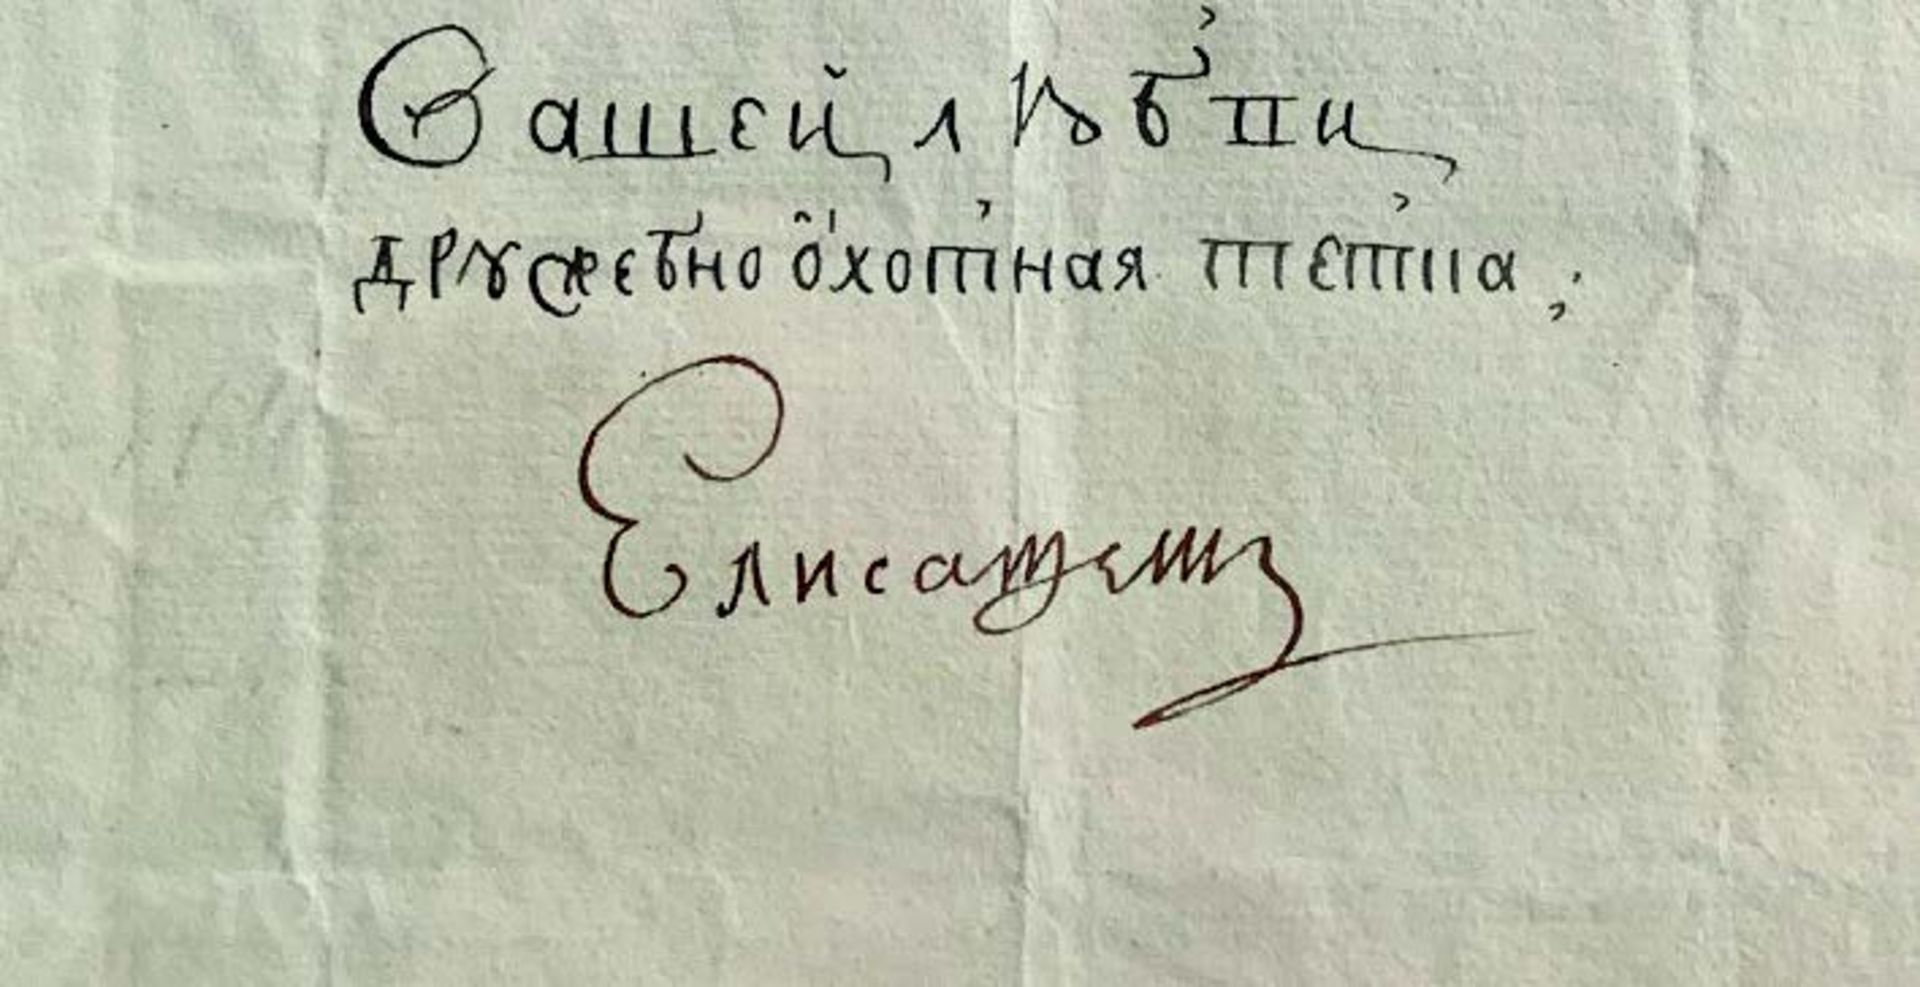 Вашей любви
дружебноохотная тетка,
Елисавет